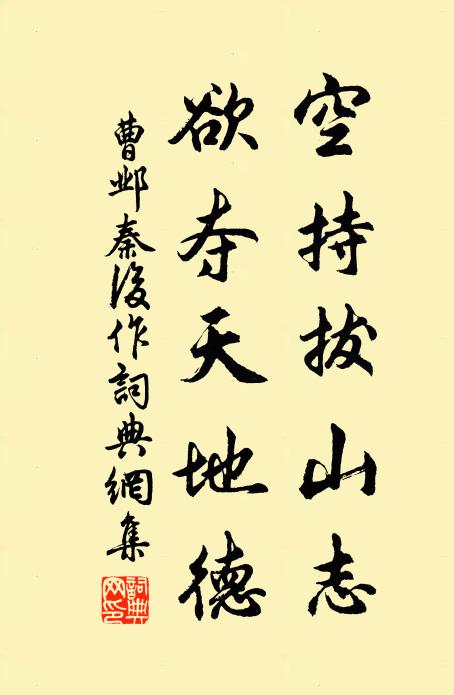 空持拔山志
欲夺天地德
曹邺秦後作詞典網集
詞典网印